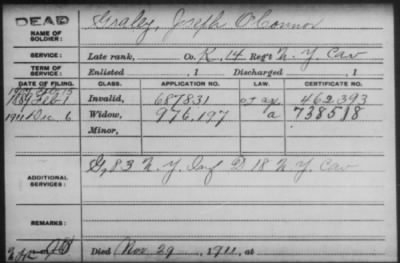 DEAD
NAME OF SOLDIER: Graley, Joseph O'Connor
SERVICE: Late rank, Co. K, 14 Reg't N.Y. Cav
TERM OF SERVICE: Enlisted , 1 Discharged , 1
DATE OF FILING. CLASS. APPLICATION NO. LAW. CERTIFICATE NO.
1889 Feb 1 Invalid, 687831 462.393
1911 Dec. 6 Widow, 976.197 a 738518
Minor,
ADDITIONAL SERVICES: G, 83 N.Y. Inf D 18 N.Y. Cav
REMARKS:
Died Nov. 29, 1911, at